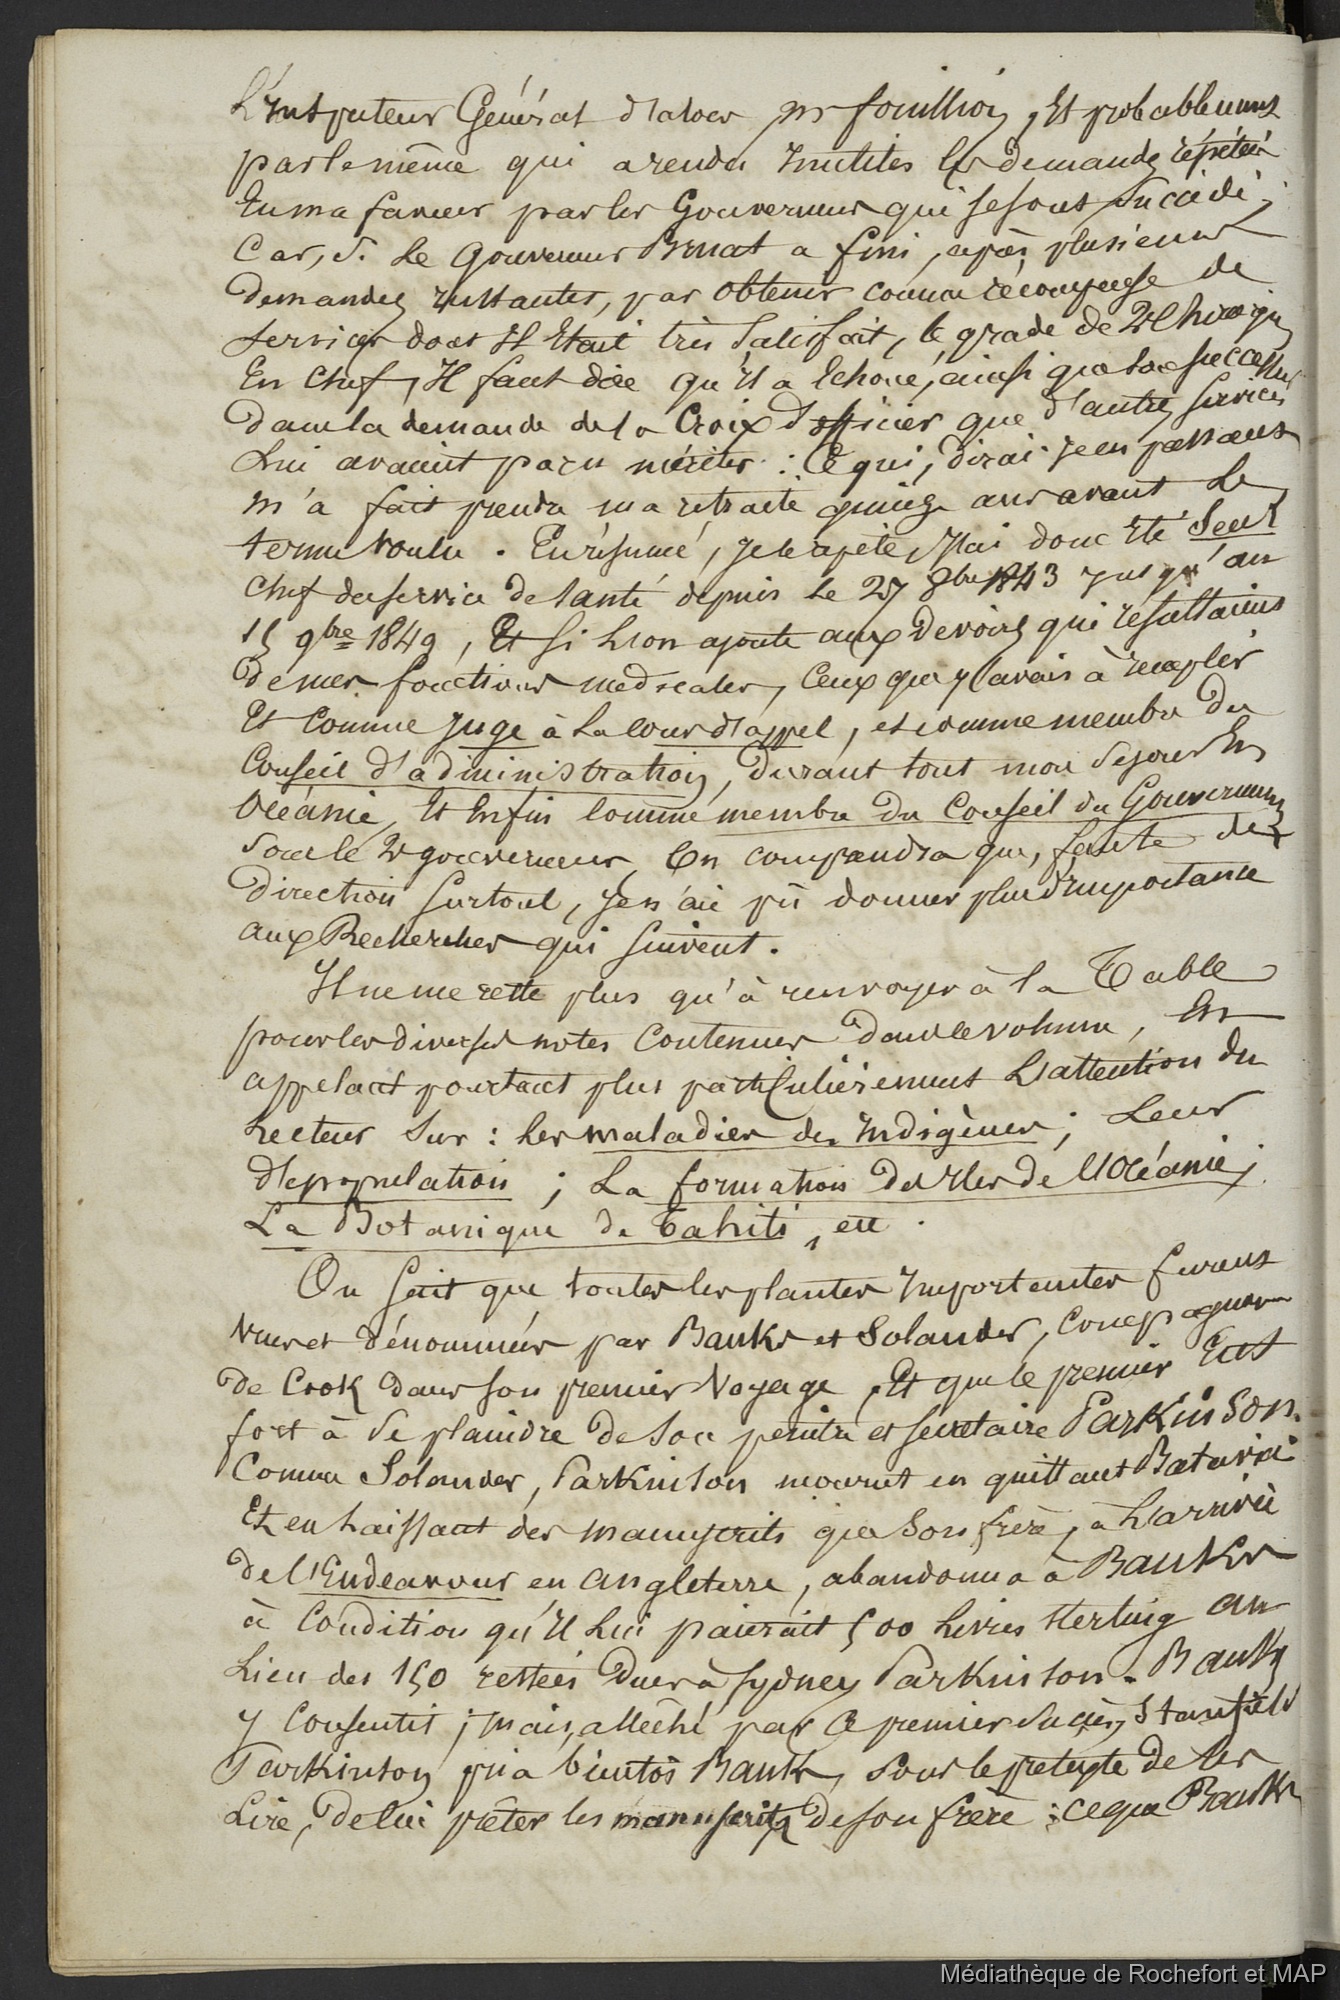 L'Inspecteur Général d'alors mr fouillioy, Et probablement
par le même qui a rendu Inutiles les demandes répétées
En ma faveur par les Gouverneurs qui se sont Succédé ;
Car, Si Le Gouverneur Bruat a fini, après plusieurs
demandes Instantes, par obtenir comme récompense de
services dont Il Etait très Satisfait, le grade de 2e chirurgien
En chef, Il faut dire qu'il a Echoué, ainsi que son successeur
dans la demande de la Croix d'officier que d'autres services
Lui avaient paru mériter : Ce qui, dirai-je en passant
m'a fait prendre ma retraite quinze ans avant Le
terme voulu. En résumé, je le répète, j'ai donc Eté Seul
chef du service de santé depuis le 27 8bre 1843 jusqu'au
15 9bre 1849, Et Si L'on ajoute aux devoirs qui résultaient
de mes fonctions médicales, Ceux que j'avais à remplir
Et Comme Juge à La Cour d'appel, et comme membre du
Conseil d'administration, durant tout mon séjour En
Océanie, Et Enfin Comme membre du Conseil du Gouvernement
Sous le 2e gouverneur, On comprendra que, faute de
direction Surtout, je n'aie pû donner plus d'Importance
aux Recherches qui Suivent.
Il ne me reste plus qu'à renvoyer à la Table
pour les diverses notes Contenues dans le volume, En
appelant pourtant plus particulièrement L'attention du
Lecteur sur : Les maladies des Indigènes ; Leur
dépopulation ; La formation des Iles de l'Océanie ;
La Botanique de Tahiti, etc.
On Sait que toutes les plantes Importantes furent
vues et dénommées par Banks et Solander, Compagnons
de Cook dans son premier Voyage, Et que le premier Eut
fort à Se plaindre de Son peintre et secrétaire Parkinson.
Comme Solander, Parkinson mourut en quittant Batavia
Et en Laissant des manuscrits que Son frère, à L'arrivée
de l'Endeavour en Angleterre, abandonna à Banks
à Condition qu'il Lui paierait 500 Livres Sterling au
Lieu des 150 restées Dues à Sydney Parkinson. Banks
y Consentit ; mais, alléché par Ce premier Succès, Stanfield
Parkinson pria bientôt Banks, Sous le prétexte de les
Lire, de lui prêter les manuscrits de son frère ; ce que Banks
Médiathèque de Rochefort et MAP